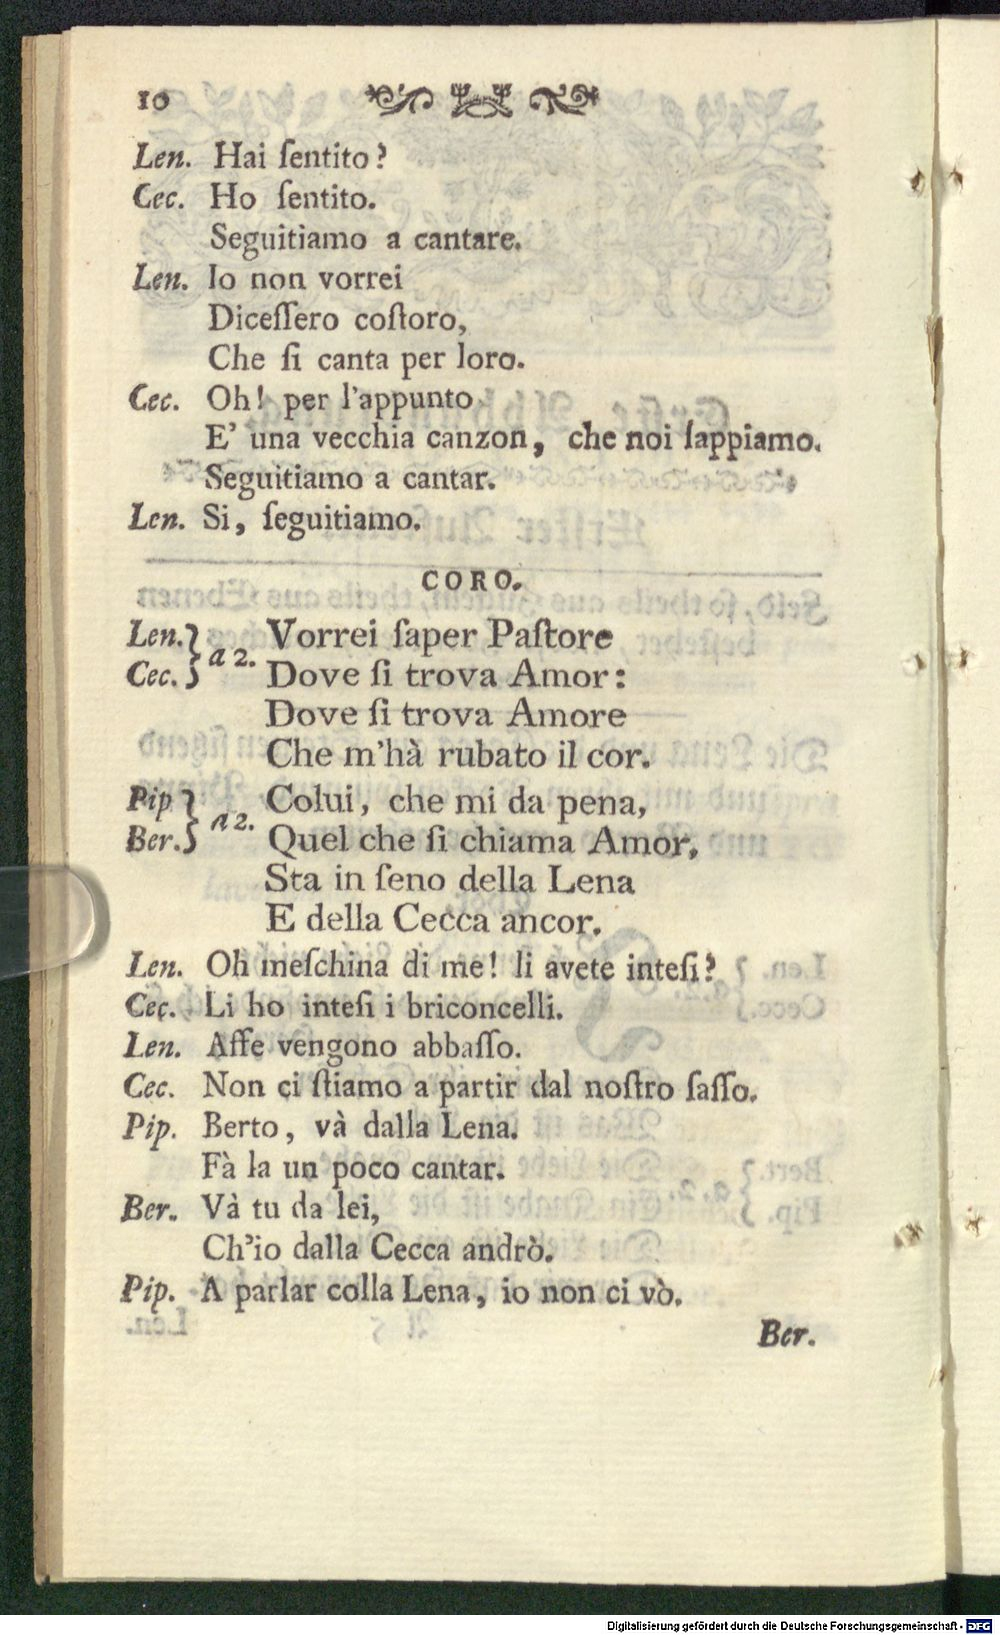 10
Len. Hai ſentito?
Cec. Ho ſentito.
Seguitiamo a cantare.
Len. Io non vorrei
Diceſſero coſtoro,
Che ſi canta per loro.
Cec. Oh! per l'appunto
E' una vecchia canzon, che noi ſappiamo.
Seguitiamo a cantar.
Len. Si, ſeguitiamo.
CORO.
Len. } a 2. Vorrei ſaper Paſtore
Cec. } Dove ſi trova Amor:
Dove ſi trova Amore
Che m'hà rubato il cor.
Pip } a 2. Colui, che mi da pena,
Ber. } Quel che ſi chiama Amor,
Sta in ſeno della Lena
E della Cecca ancor.
Len. Oh meſchina di me! li avete inteſi?
Cec. Li ho inteſi i briconcelli.
Len. Affe vengono abbaſſo.
Cec. Non ci ſtiamo a partir dal noſtro ſaſſo.
Pip. Berto, và dalla Lena.
Fà la un poco cantar.
Ber. Và tu da lei,
Ch'io dalla Cecca andrò.
Pip. A parlar colla Lena, io non ci vò.
Ber.
Digitalisierung gefördert durch die Deutsche Forschungsgemeinschaft - DFG